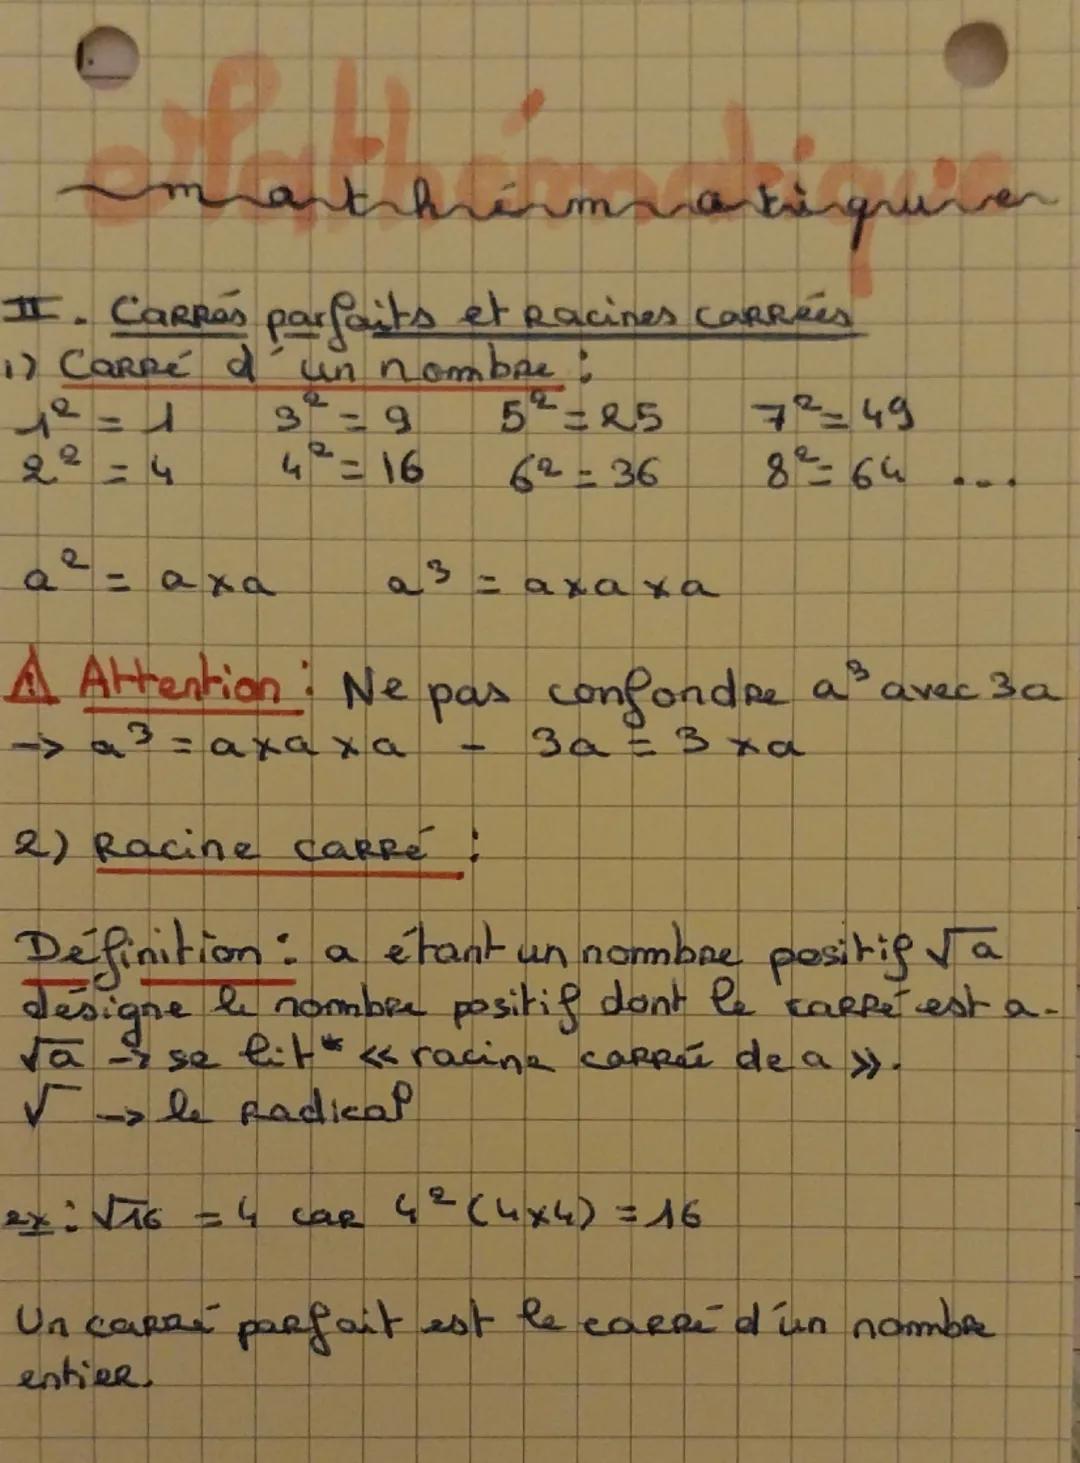 Mathématique
mathématique
II. Carrés parfaits et Racines carrées
1) Carré d'un nombre :
1² = 1 3² = 9 5² = 25 7² = 49
2² = 4 4² = 16 6² = 36 8² = 64 ...
a² = a x a a³ = a x a x a
⚠ Attention : Ne pas confondre a³ avec 3a
-> a³ = a x a x a - 3a = 3 x a
2) Racine carré :
Définition : a étant un nombre positif √a
désigne le nombre positif dont le carré est a.
√a -> se lit* << racine carrée de a >>.
√ -> le radical
ex : √16 = 4 car 4² (4x4) = 16
Un carré parfait est le carré d'un nombre
entier.